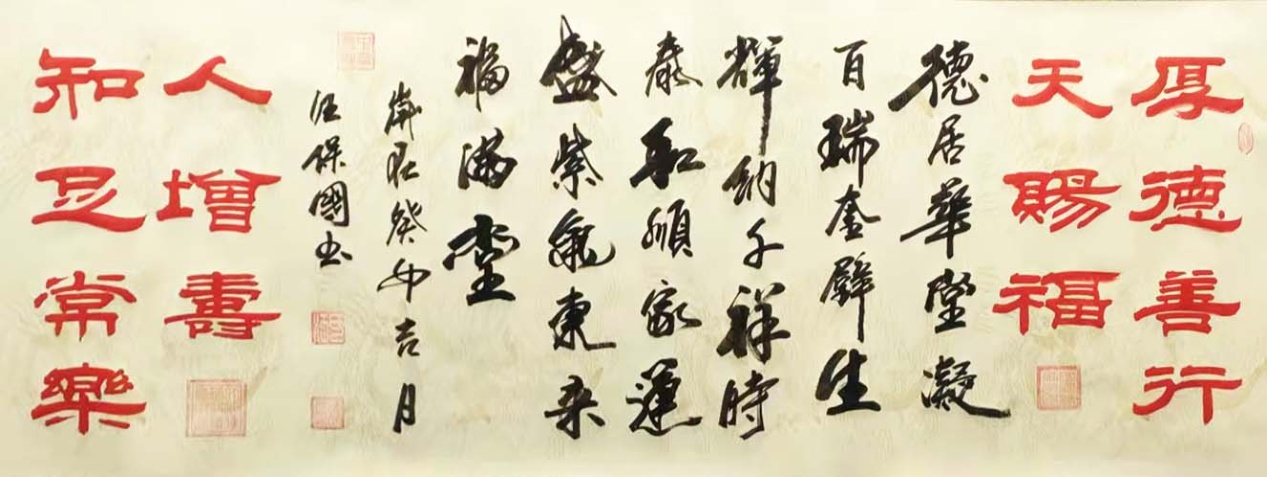 厚德善行
天賜福
德居華堂凝
百瑞奎璧生
輝納千祥時
泰和順家運
盛紫氣東来
福滿堂
歲在癸卯吉月
汪保國书
人增壽
知足常樂